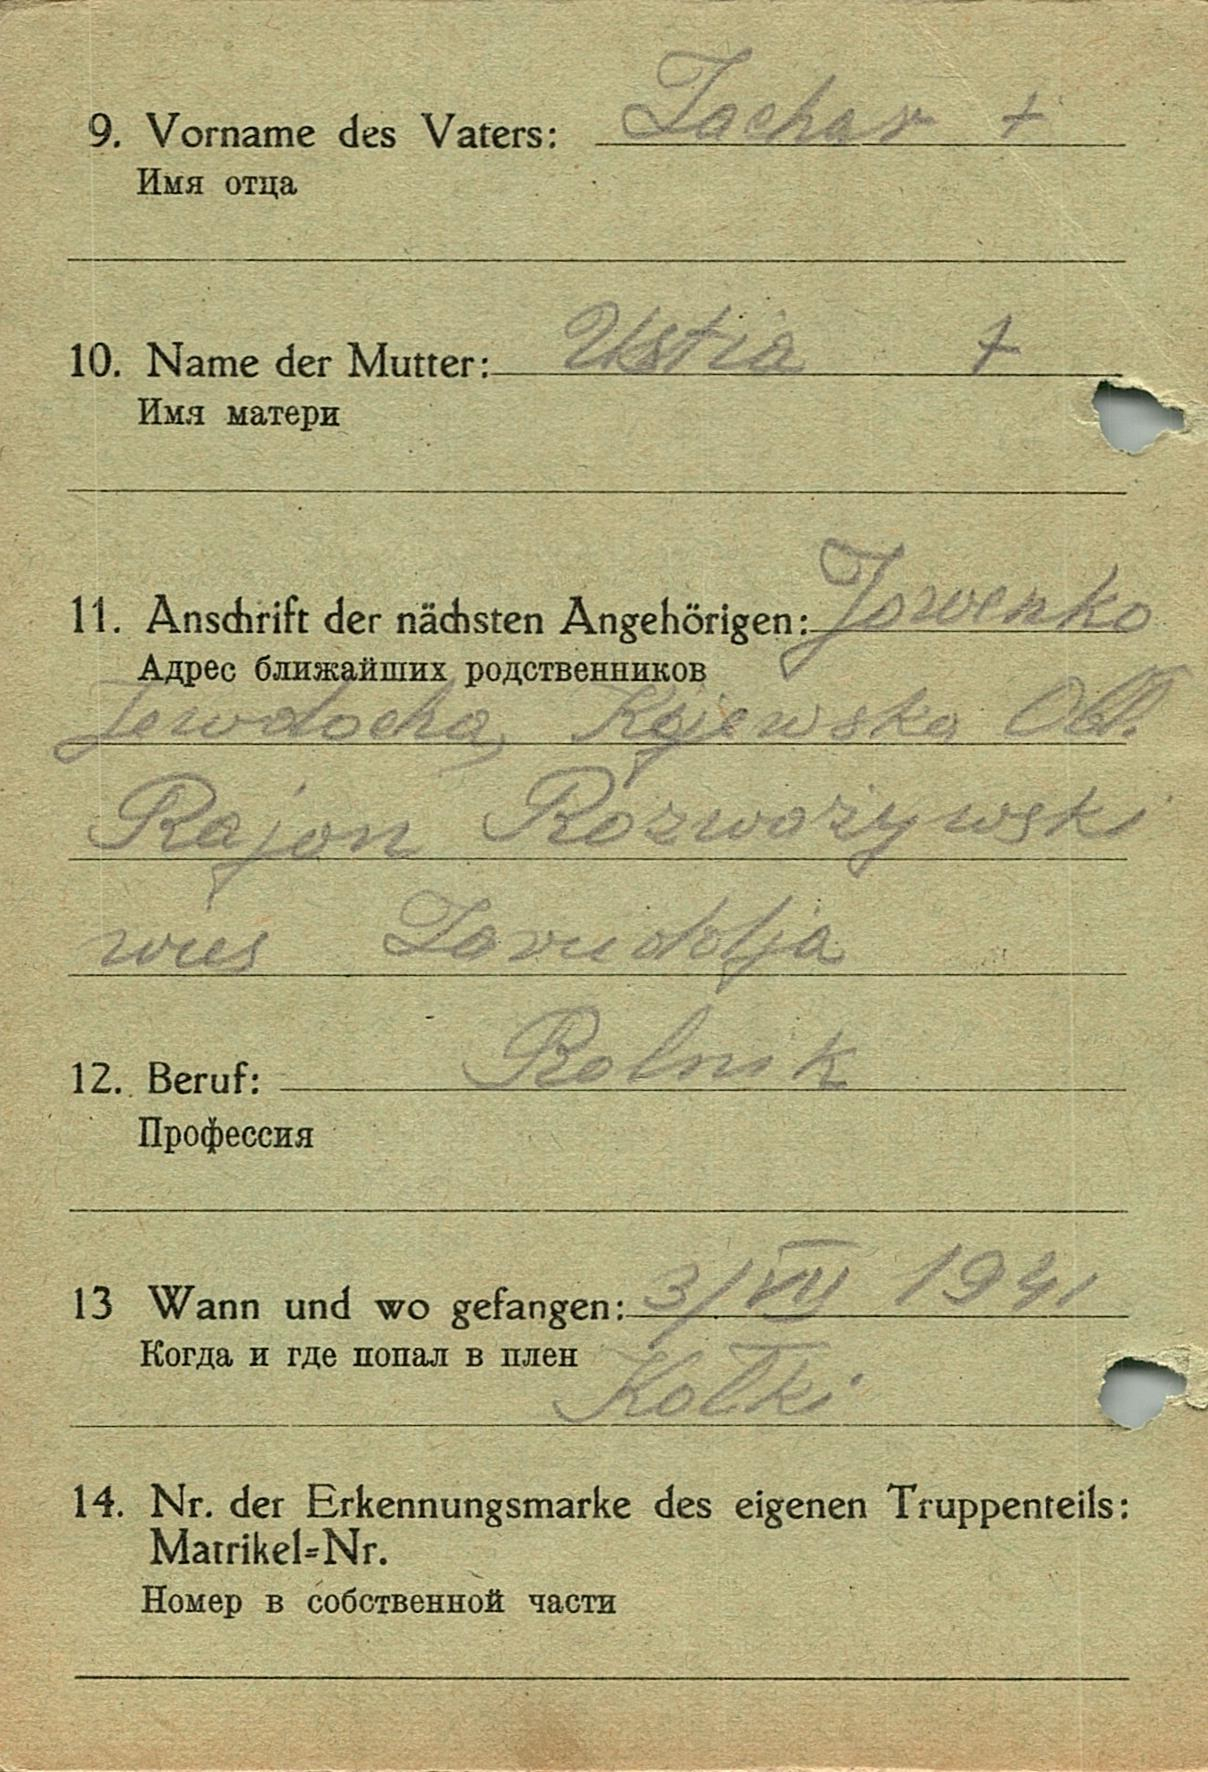 9. Vorname des Vaters: Zachar +
Имя отца
10. Name der Mutter: Ustia +
Имя матери
11. Anschrift der nächsten Angehörigen: Jowenko
Адрес ближайших родственников
Jewdocha, Kijewska Obł.
Rajon Rozważywski
wieś Zarudolja
12. Beruf: Rolnik
Профессия
13 Wann und wo gefangen: 3/VII 1941
Когда и где попал в плен
Kołki
14. Nr. der Erkennungsmarke des eigenen Truppenteils:
Matrikel=Nr.
Номер в собственной части